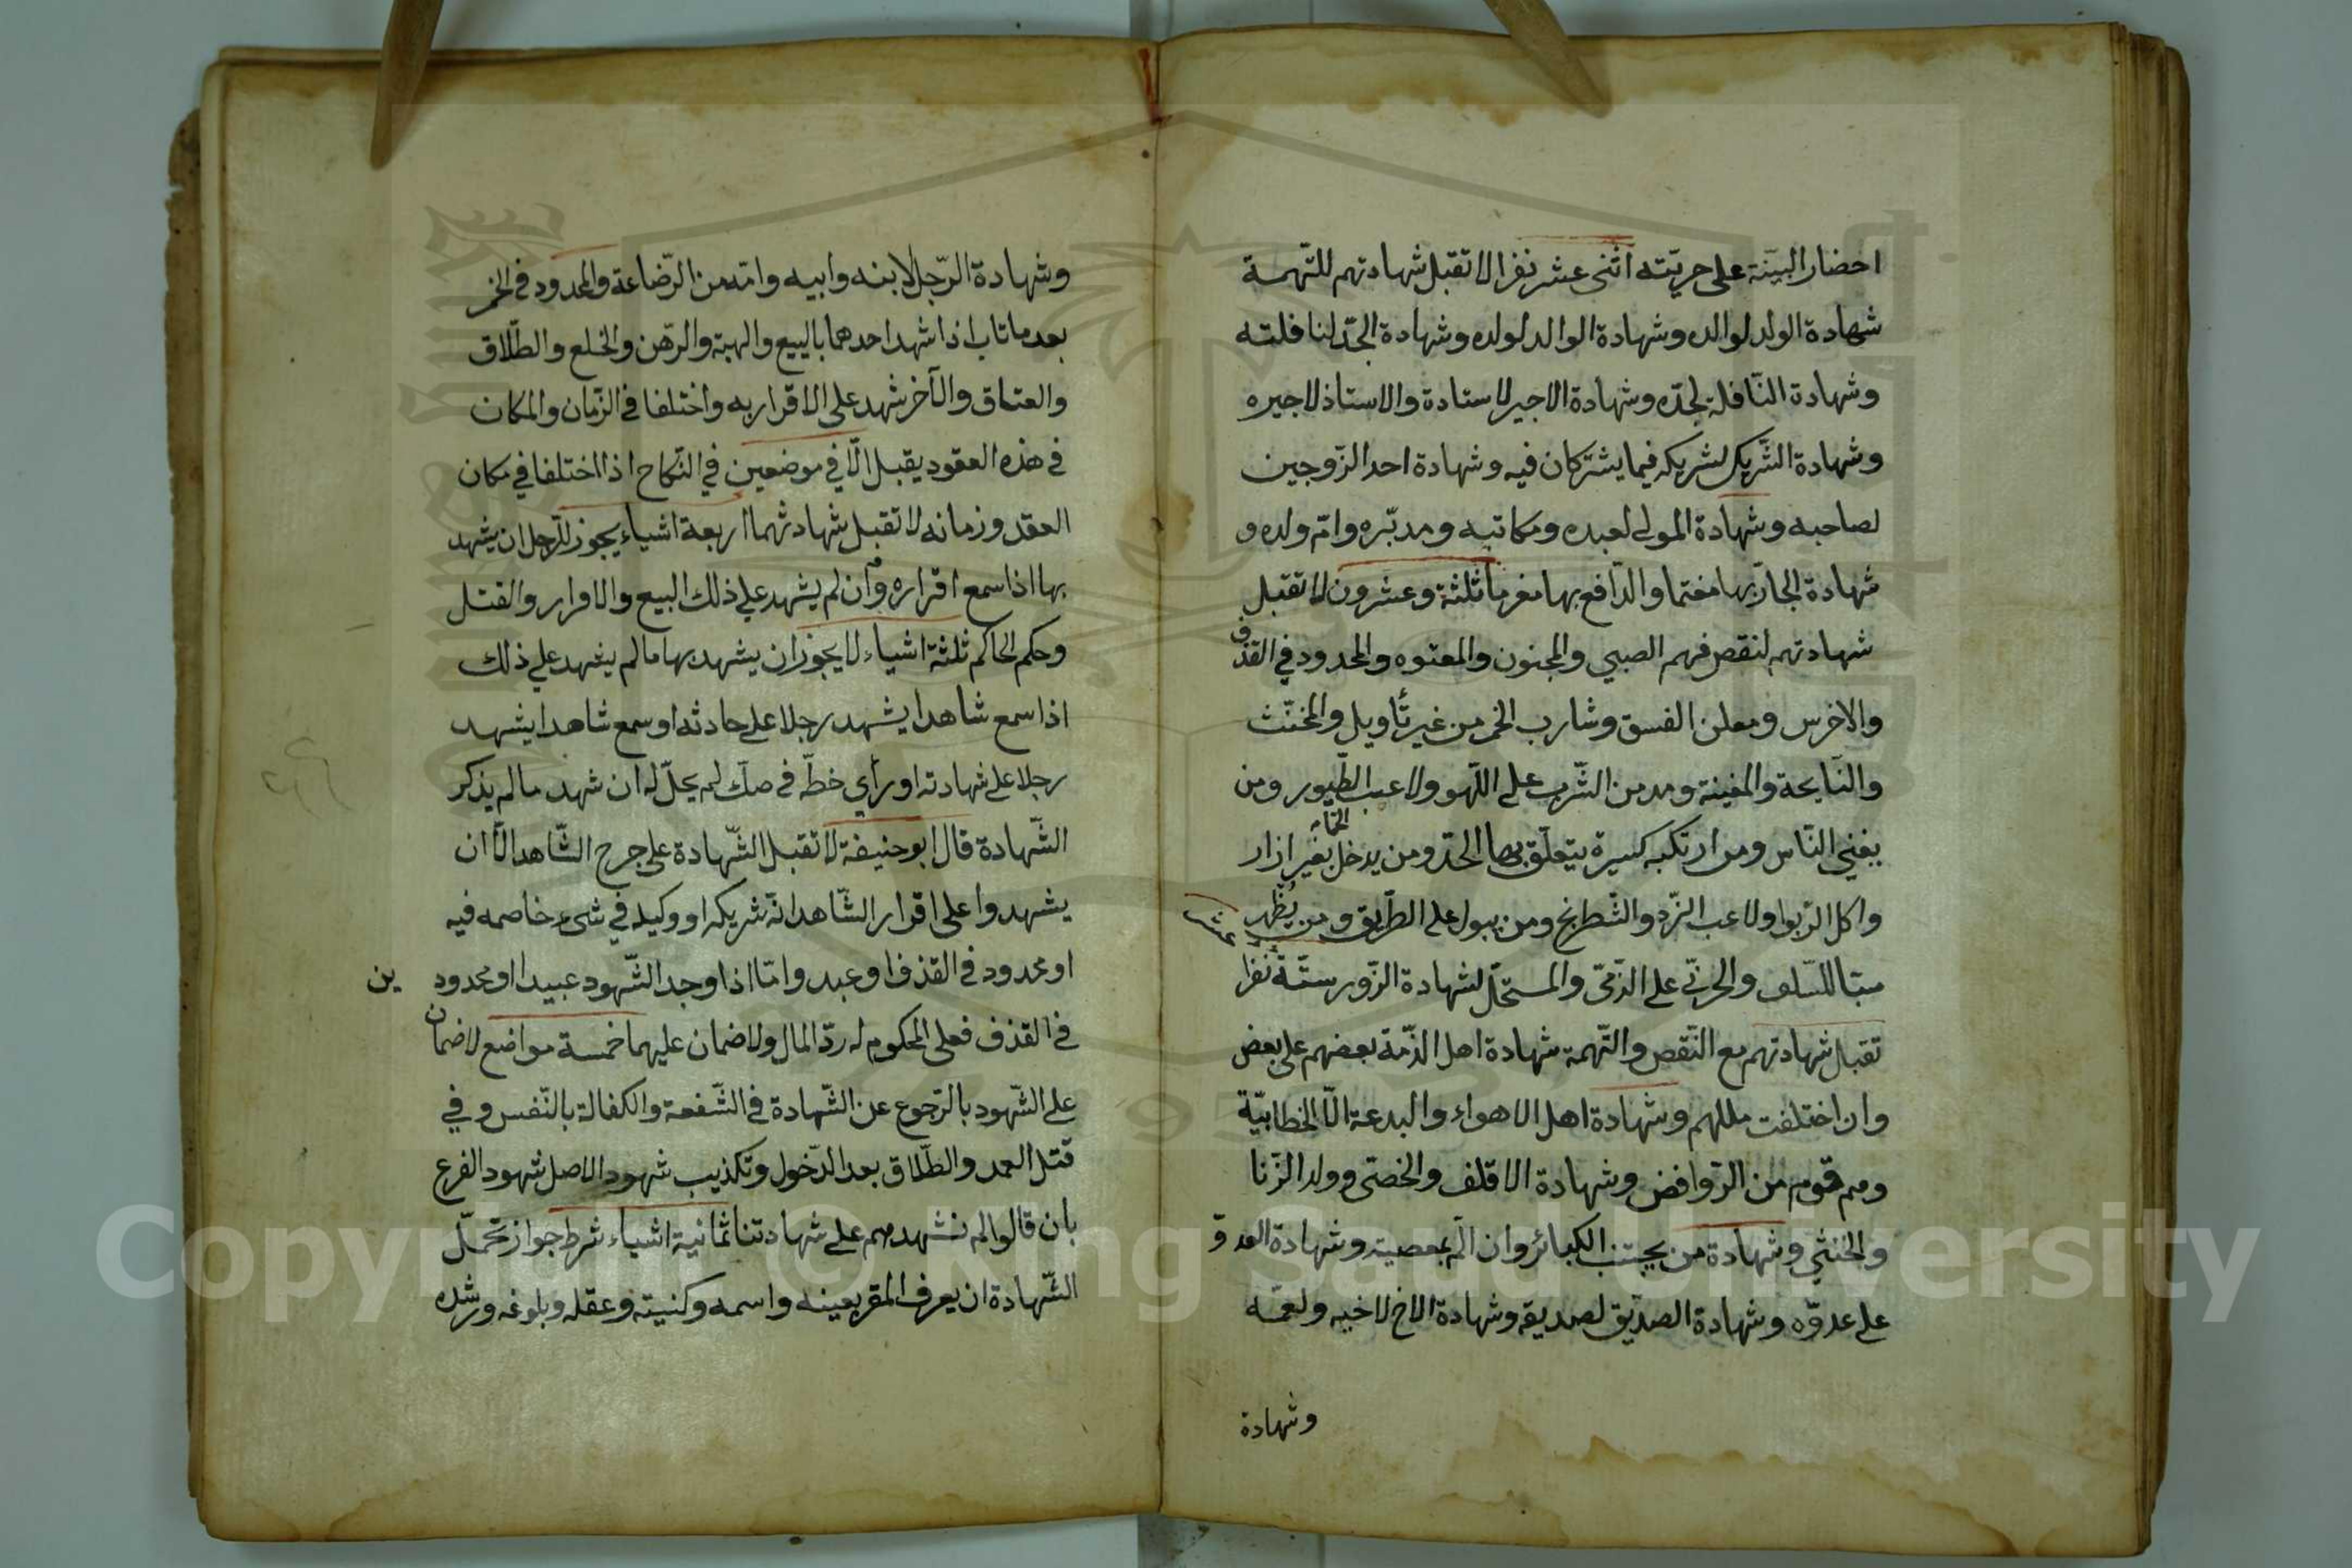 احضار البيّنة على حريّته اثنى عشر نفرا لا تقبل شهادتهم للتّهمة
شهادة الولد لوالده وشهادة الوالد لولده وشهادة الجدّ لنافلته
وشهادة النّافلة لجدّه وشهادة الاجير لاستاده والاستاذ لاجيره
وشهادة الشّريك لشريكه فيما يشتركان فيه وشهادة احد الزّوجين
لصاحبه وشهادة المولى لعبده ومكاتبه ومدبّره وامّ ولده و
شهادة الجارّ بها مغنما والدّافع بها مغرما ثلثة وعشرون لا تقبل
شهادتهم لنقص فهم الصبي والمجنون والمعتوه والمحدود في القذف
والاخرس ومعلن الفسق وشارب الخمر من غير تأويل والمخنّث
والنّايحة والمغينة ومدمن الشّرب على اللّهو ولاعب الطّيور ومن
يغني النّاس ومن ارتكب كبيرة يتعلّق بها الحدّ ومن يدخل الحمّام بغير ازار
واكل الرّبوا ولاعب النّرد والشّطرنج ومن يبول على الطّريق ومن يظهر
سبّ السّلف والحربّي على الذّمّي والمستحلّ لشهادة الزّور ستّة عشر نفرا
تقبل شهادتهم مع النّقص والتّهمة شهادة اهل الذّمّة بعضهم على بعض
وان اختلفت مللهم وشهادة اهل الاهواء والبدعة الّا الخطابيّة
وهم قوم من الرّوافض وشهادة الاقلف والخصّى وولد الزّنا
والخنثي وشهادة من يجتنب الكبائر وان المّ بمعصية وشهادة العدوّ
على عدوّه وشهادة الصدّيق لصديقه وشهادة الاخ لاخيه ولعمّه
وشهادة
وشهادة الرّجل لابنه وابيه وامّه من الرّضاعة والمحدود في الخمر
بعد ما تاب اذا شهد احدهما بالبيع والهبة والرّهن والخلع والطّلاق
والعتاق والآخر شهد على الاقرار به واختلفا في الزّمان والمكان
في هذه العقود يقبل الّا في موضعين في النّكاح اذا اختلفا في مكان
العقد وزمانه لا تقبل شهادتهما اربعة اشياء يجوز للرّجل ان يشهد
بها اذا سمع اقراره وان لم يشهد على ذلك البيع والاقرار والقتل
وحكم الحاكم ثلثة اشياء لا يجوز ان يشهد بها ما لم يشهد على ذلك
اذا سمع شاهدا يشهد رجلا على حادثه او سمع شاهدا يشهد
رجلا على شهادته او رأي خطّه في صكّ لم يحلّ له ان شهد ما لم يذكر
الشّهادة قال ابو حنيفة لا تقبل الشّهادة على جرح الشّاهد الّا ان
يشهدوا على اقرار الشّاهد انّه شريكه او وكيله في شيء خاصمه فيه
او محدود في القذف او عبد وامّا اذا وجد الشّهود عبيدا او محدودين
في القذف فعلى المحكوم له ردّ المال ولا ضمان عليهما خمسة مواضع لا ضمان
على الشّهود بالرّجوع عن الشّهادة في الشّفعة والكفالة بالنّفس وفي
قتل العمد والطّلاق بعد الدّخول وتكذيب شهود الاصل شهود الفرع
بان قالوا لم نشهدهم على شهادتنا ثمانية اشياء شرط جواز تحمّل
الشّهادة ان يعرف المقر بعينه واسمه وكنيته وعقله وبلوغه ورشده
Copyright © King Saud University